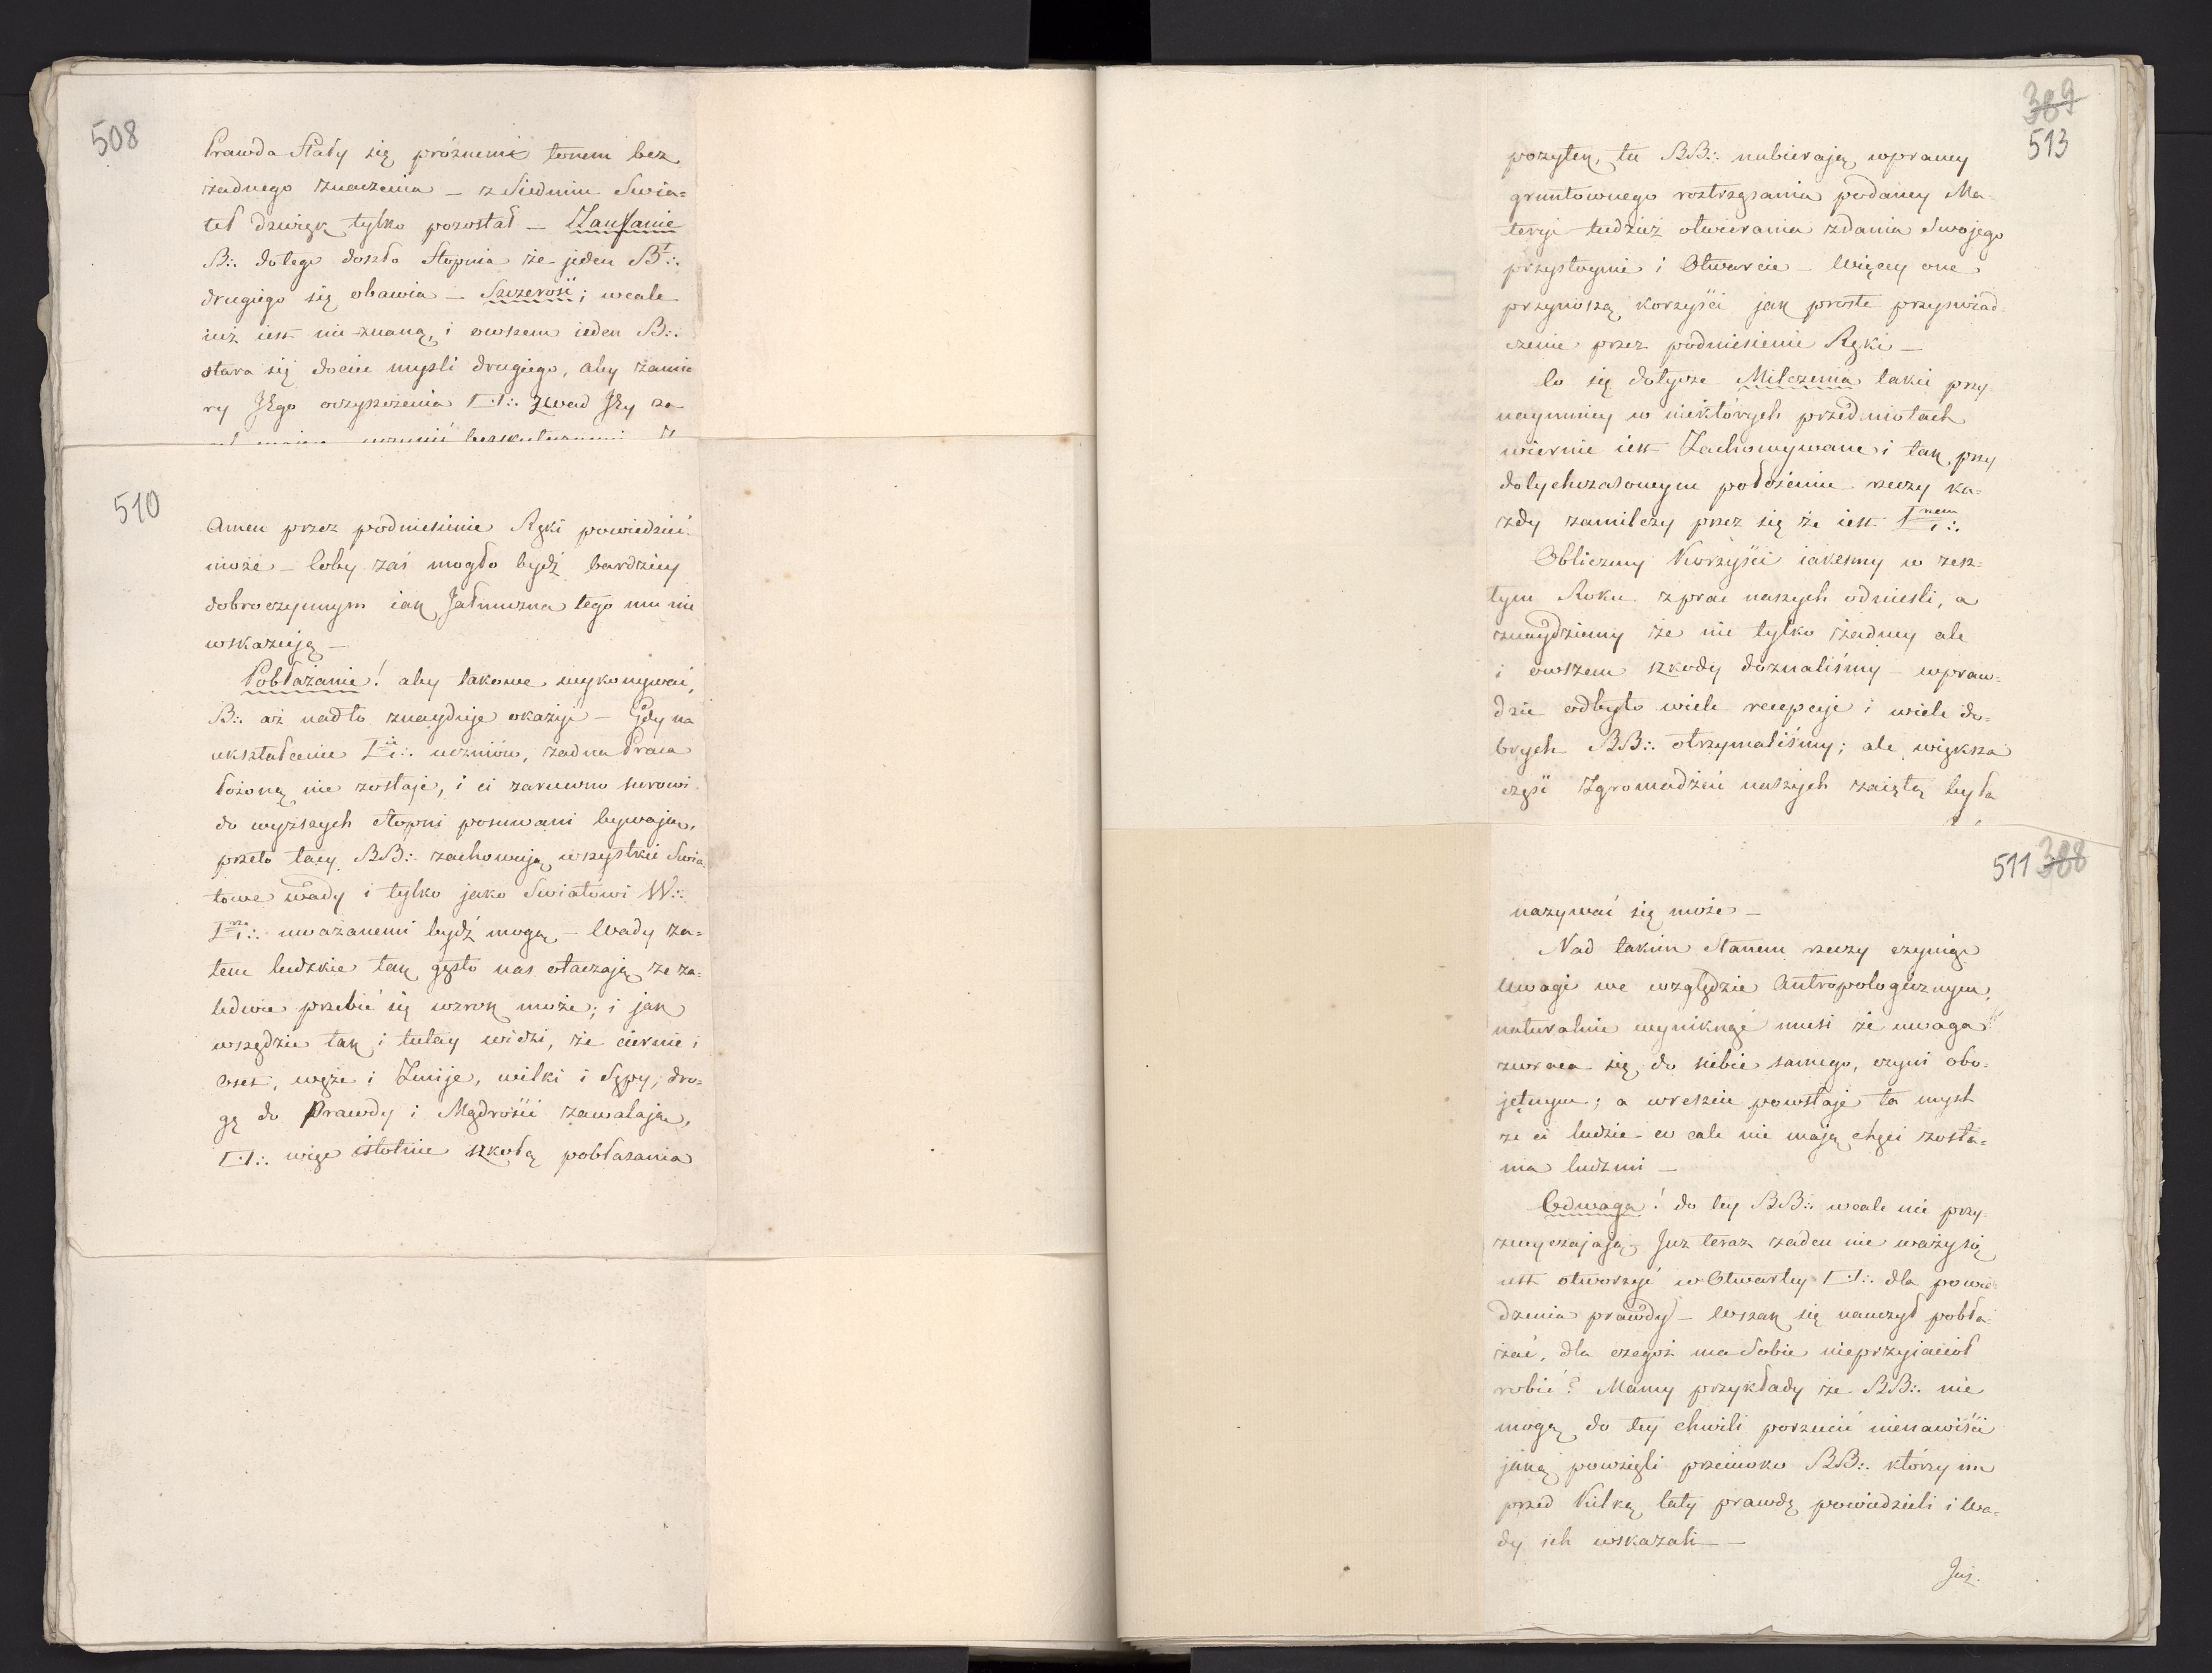 508
Prawda Stały się próżnemi tonem bez
żadnego znaczenia – z Siedmiu Swia=
teł dzwięk tylko pozostał – Zaufanie
B∴ dotego doszło Stopnia że jeden B∴
drugiego się obawia – Szczerość; wcale
iuż iest nie znaną, i owszem ieden B∴
stara się dociec myśli drugiego, aby zamia
ry Jego oczyszczenia □∴ z wad Jey za
510
Amen przez podniesienie Ręki powiedzieć
może – Coby zaś mogło bydź bardziey
dobroczynnym iak Jałmużna tego mu nie
wskazują –
Pobłażanie! aby takowe wykonywać,
B∴ aż nadto znayduje okazyi – Gdy na
ukształcenie uczniów, żadna Praca
łożoną nie zostaje, i ci zarowno surowi
do wyższych Stopni posuwani bywają,
przeto tacy BB∴ zachowują wszystkie Swia=
towe wady i tylko jako Swiatowi W∴
uważanemi bydź mogą – Wady za=
tem ludzkie tak gęsto nas otaczają że za=
ledwie przebić się wzrok może; i jak
wszędzie tak i tutay widzi, że ciernie i
Oset, węże i Żmije, wilki i Sępy, dro=
gę do Prawdy i Mądrości zawalają,
□∴ więc istotnie szkołą pobłażania
389
513
pożytek, tu BB∴ nabierają wprawy
gruntownego roztrząsania podaney Ma=
teryi tudzież otwierania zdania Swojego
przystoynie i Otwarcie – Więcey one
przynoszą korzyści jak proste przyswiad=
czenie przez podniesienie Ręki –
Co się dotycze Milczenia takie przy
naymniey w niektórych przedmiotach
wiernie iest Zachowywane i tak przy
dotychczasowym położeniu rzeczy ka=
żdy zamilczy przez się że iest
Obliczmy Korzyści iakeśmy w zesz=
łym Roku z prac naszych odnieśli, a
znaydziemy że nie tylko żadney ale
i owszem szkody doznaliśmy – wpraw=
dzie odbyto wiele recepcyi i wiele do=
brych BB∴ otrzymaliśmy; ale większa
część Zgromadzeń naszych zaiętą była
511 388
nazywać się może –
Nad takim Stanem rzeczy czyniąc
Uwagi we względzie Antropologicznym,
naturalnie wyniknąć musi że uwaga
zwraca się do siebie samego, czyni obo=
jętnym; a wreszcie powstaje ta myśl
że ci ludzie w cale nie mają chęci zosta=
nia ludzmi –
Odwaga! do tey BB∴ wcale nie przy
zwyczajają, Już teraz żaden nie waży się
ust otworzyć w Otwartey □∴ dla powie=
dzenia prawdy – Wszak się nauczył pobła=
żać, dla czegoż ma Sobie nieprzyiacioł
robić? Mamy przykłady że BB∴ nie
mogą do tey chwili porzucić nienawiści
jaką powzięli przeciwko BB∴ którzy im
przed Kilką laty prawdę powiedzieli i Wa=
dy ich wskazali –
Już